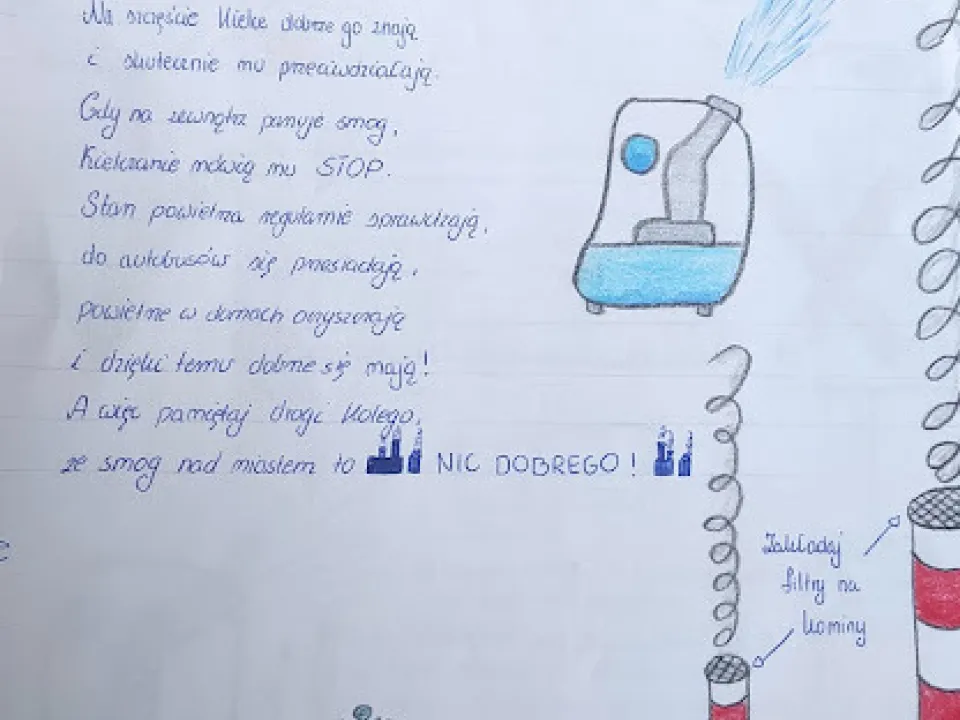 Na szczęście Kielce dobrze go znają
i skutecznie mu przeciwdziałają.
Gdy na zewnątrz panuje smog,
Kielczanie mówią mu STOP.
Stan powietrza regularnie sprawdzają,
do autobusów się przesiadają,
powietrze w domach oczyszczają
i dzięki temu dobrze się mają!
A więc pamiętaj drogi Kolego,
że smog nad miastem to NIC DOBREGO!
Zakładaj
filtry na
kominy